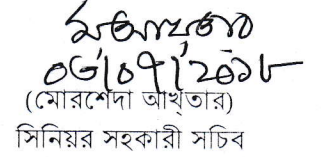 ০৫/০৭/২০১৮
(মোরশেদা আখ্তার)
সিনিয়র সহকারী সচিব